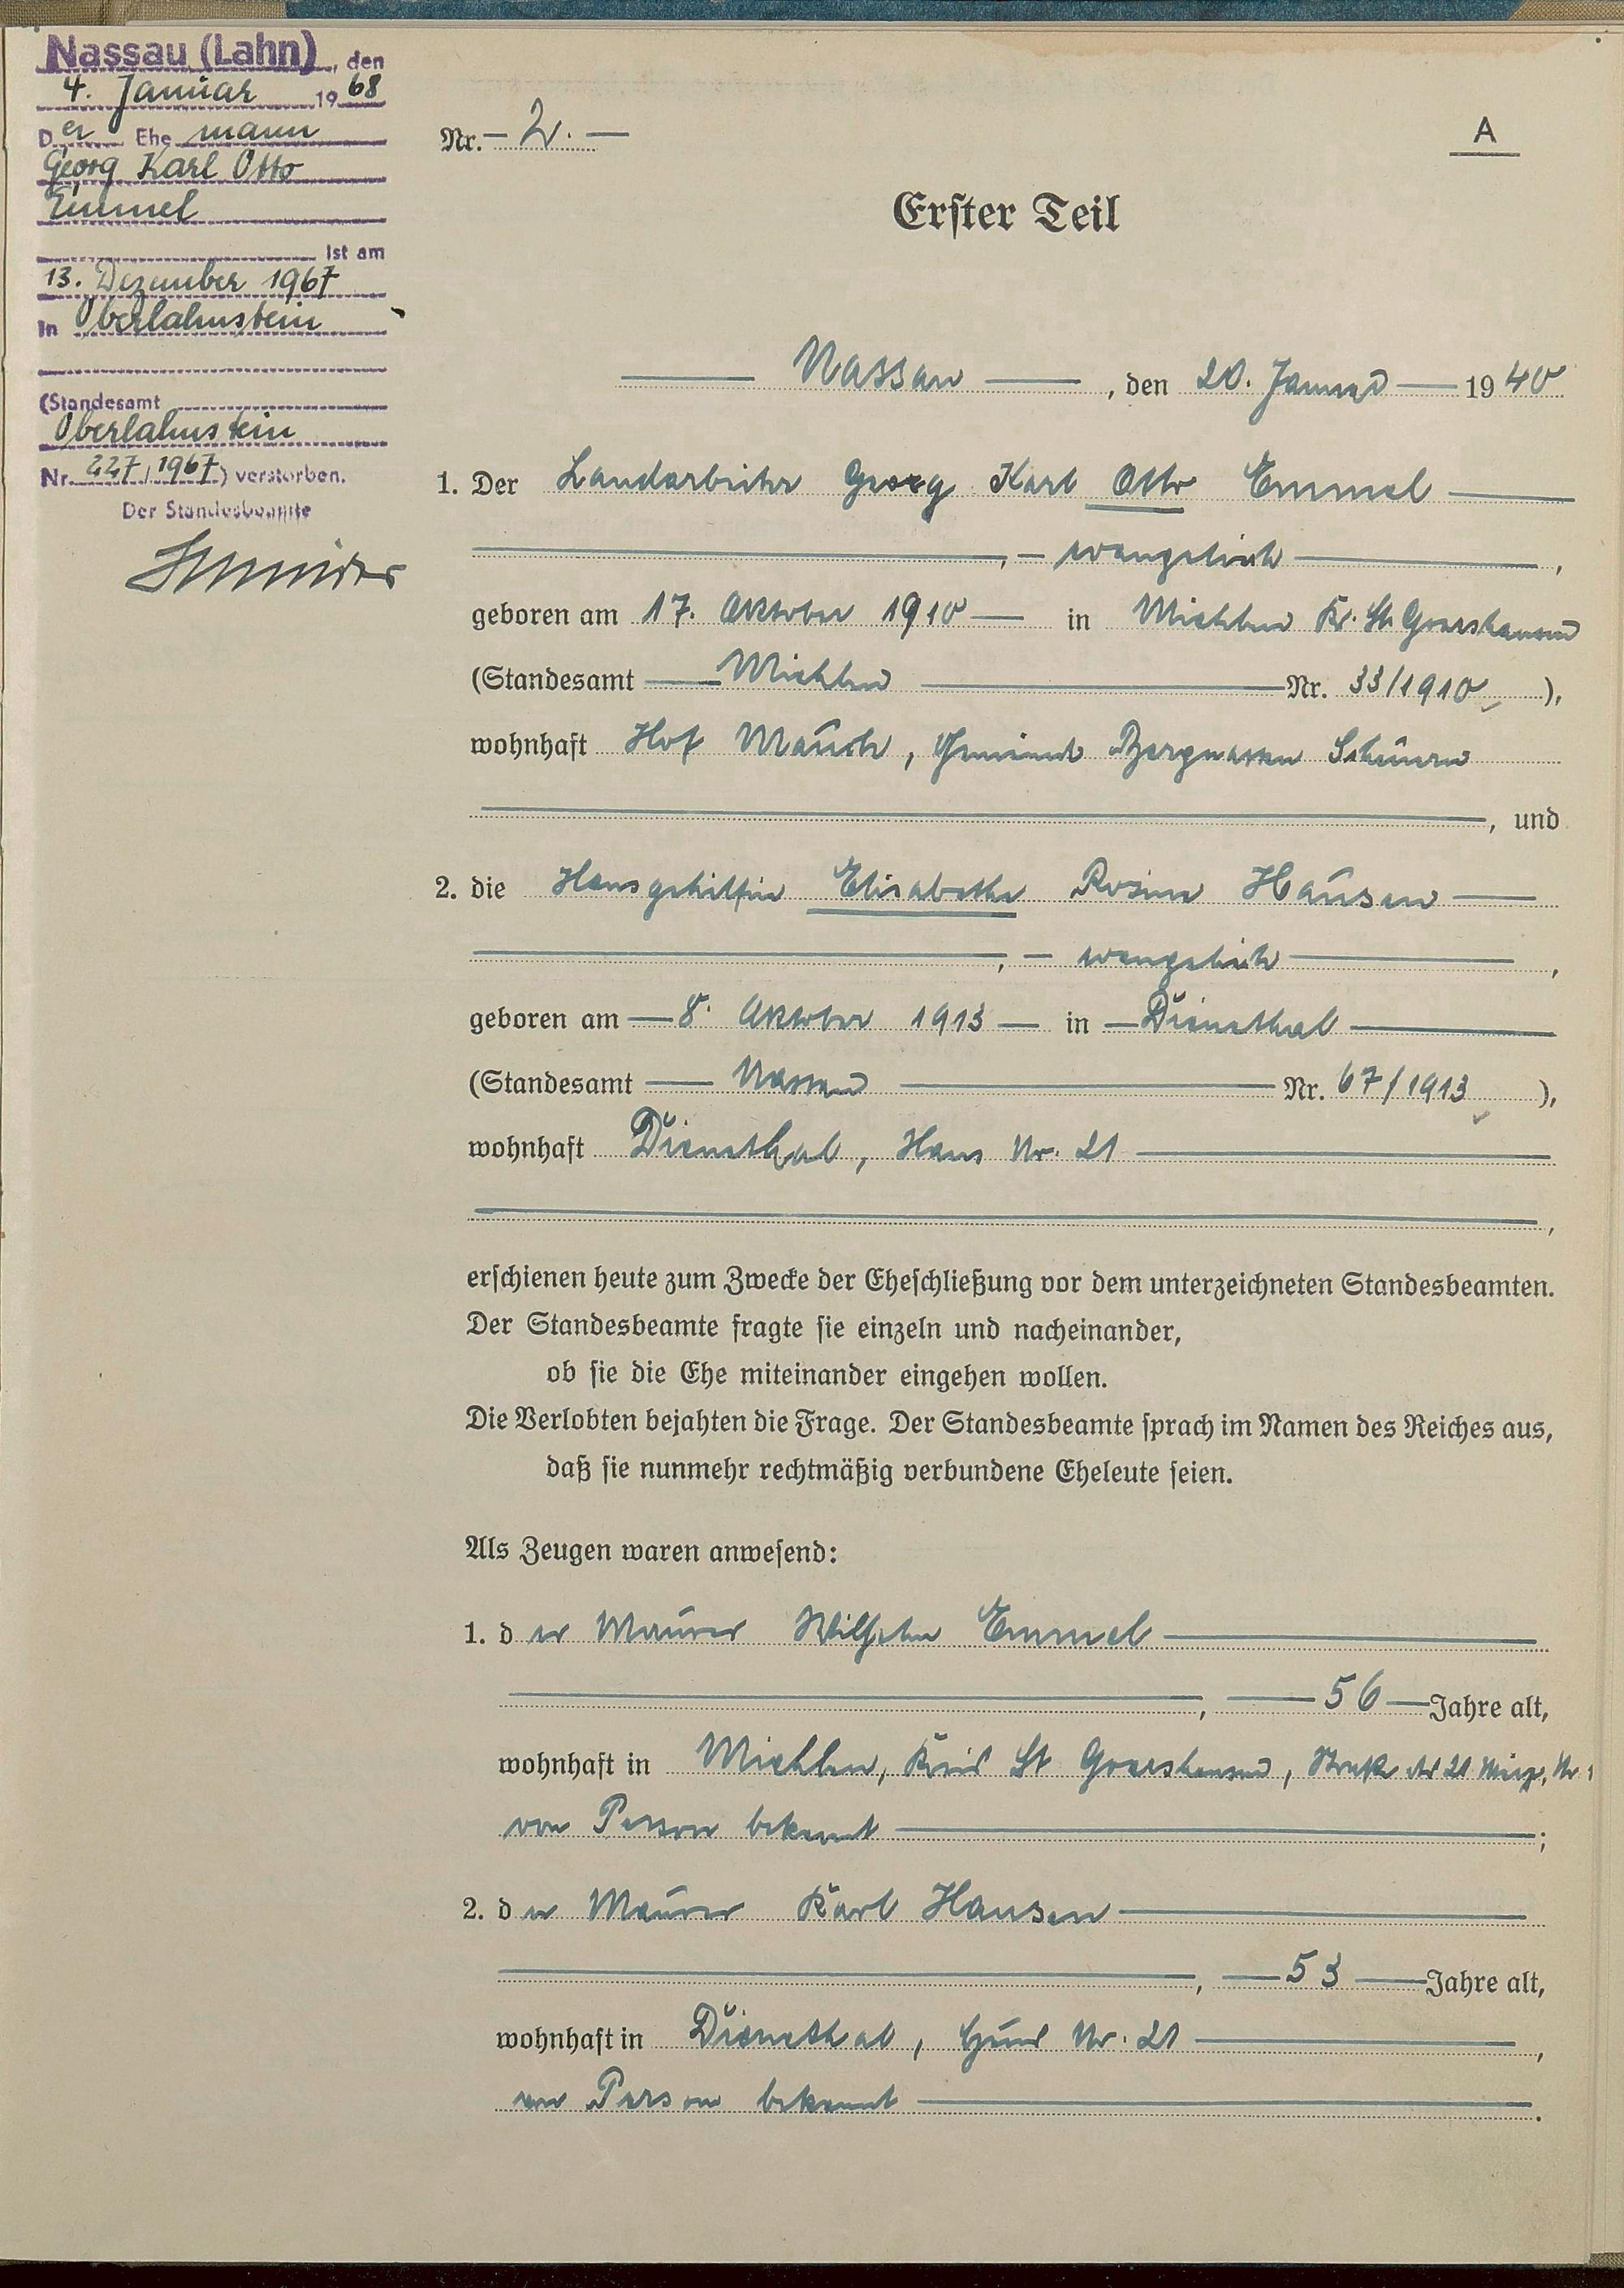 Nassau (Lahn), den
4. Januar 1968
Der Ehemann
Georg Karl Otto
Emmel
ist am
13. Dezember 1967
in Oberlahnstein
(Standesamt
Oberlahnstein
Nr. 227/1967) verstorben.
Der Standesbeamte
Nr. 2.
A
Erster Teil
Nassau, den 20. Januar 1940
1. Der Landarbeiter Georg Karl Otto Emmel
, evangelisch,
geboren am 17. Oktober 1910 in Miehlen Kr. St. Goarshausen
(Standesamt Miehlen Nr. 33/1910),
wohnhaft Hof Mauch, Gemeinde Bergnassau Scheuern
, und
2. die Hausgehilfin Elisabethe Rosine Hausen
, evangelisch,
geboren am 8. Oktober 1913 in Dienethal
(Standesamt Nassau Nr. 67/1913),
wohnhaft Dienethal, Haus Nr. 21
,
erschienen heute zum Zwecke der Eheschließung vor dem unterzeichneten Standesbeamten.
Der Standesbeamte fragte sie einzeln und nacheinander,
ob sie die Ehe miteinander eingehen wollen.
Die Verlobten bejahten die Frage. Der Standesbeamte sprach im Namen des Reiches aus,
daß sie nunmehr rechtmäßig verbundene Eheleute seien.
Als Zeugen waren anwesend:
1. der Maurer Wilhelm Emmel
, 56 Jahre alt,
wohnhaft in Miehlen, Kreis St Goarshausen, Straße der 21 Nr
von Person bekannt;
2. der Maurer Karl Hausen
, 53 Jahre alt,
wohnhaft in Dienethal, Haus Nr. 21,
von Person bekannt.